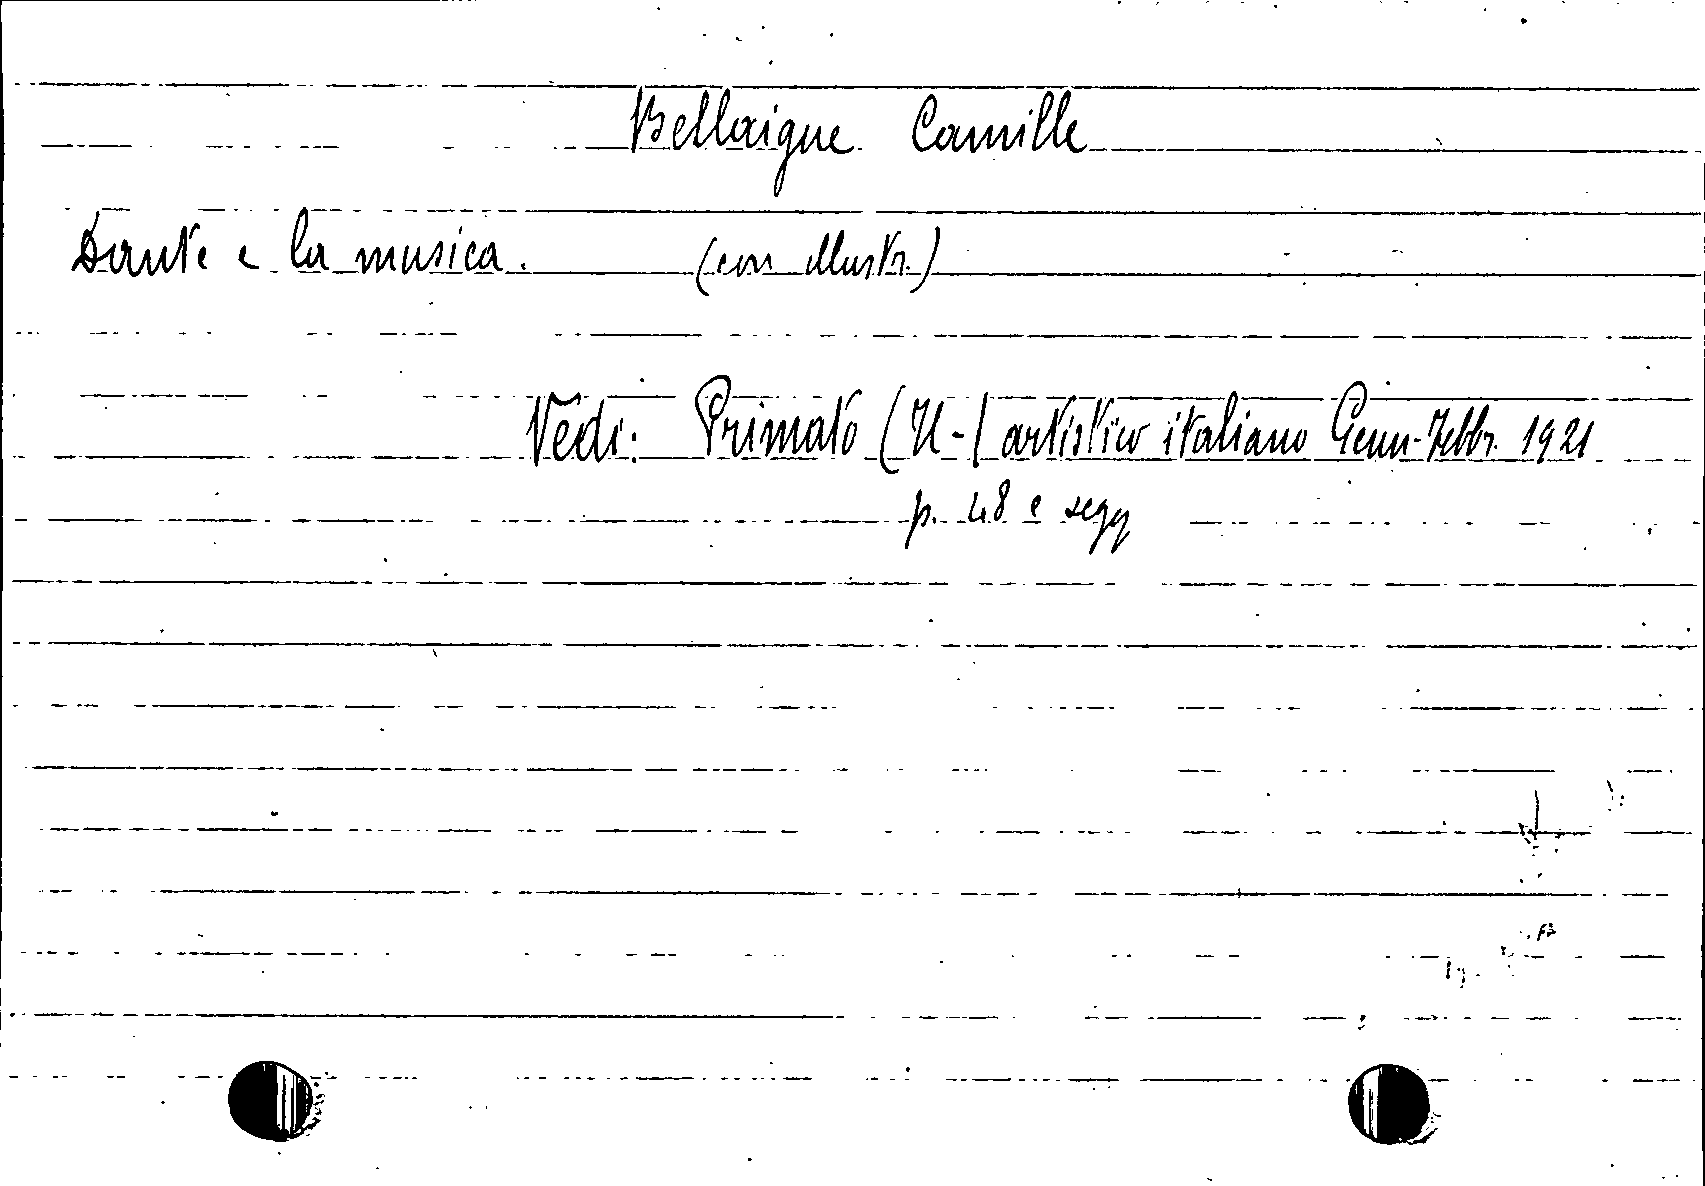 Bellaigue Camille
Dante e la musica. (con illustr.)
Vedi: Primato (Il-) artistico italiano Genn-Febbr. 1921
p. 48 e segg